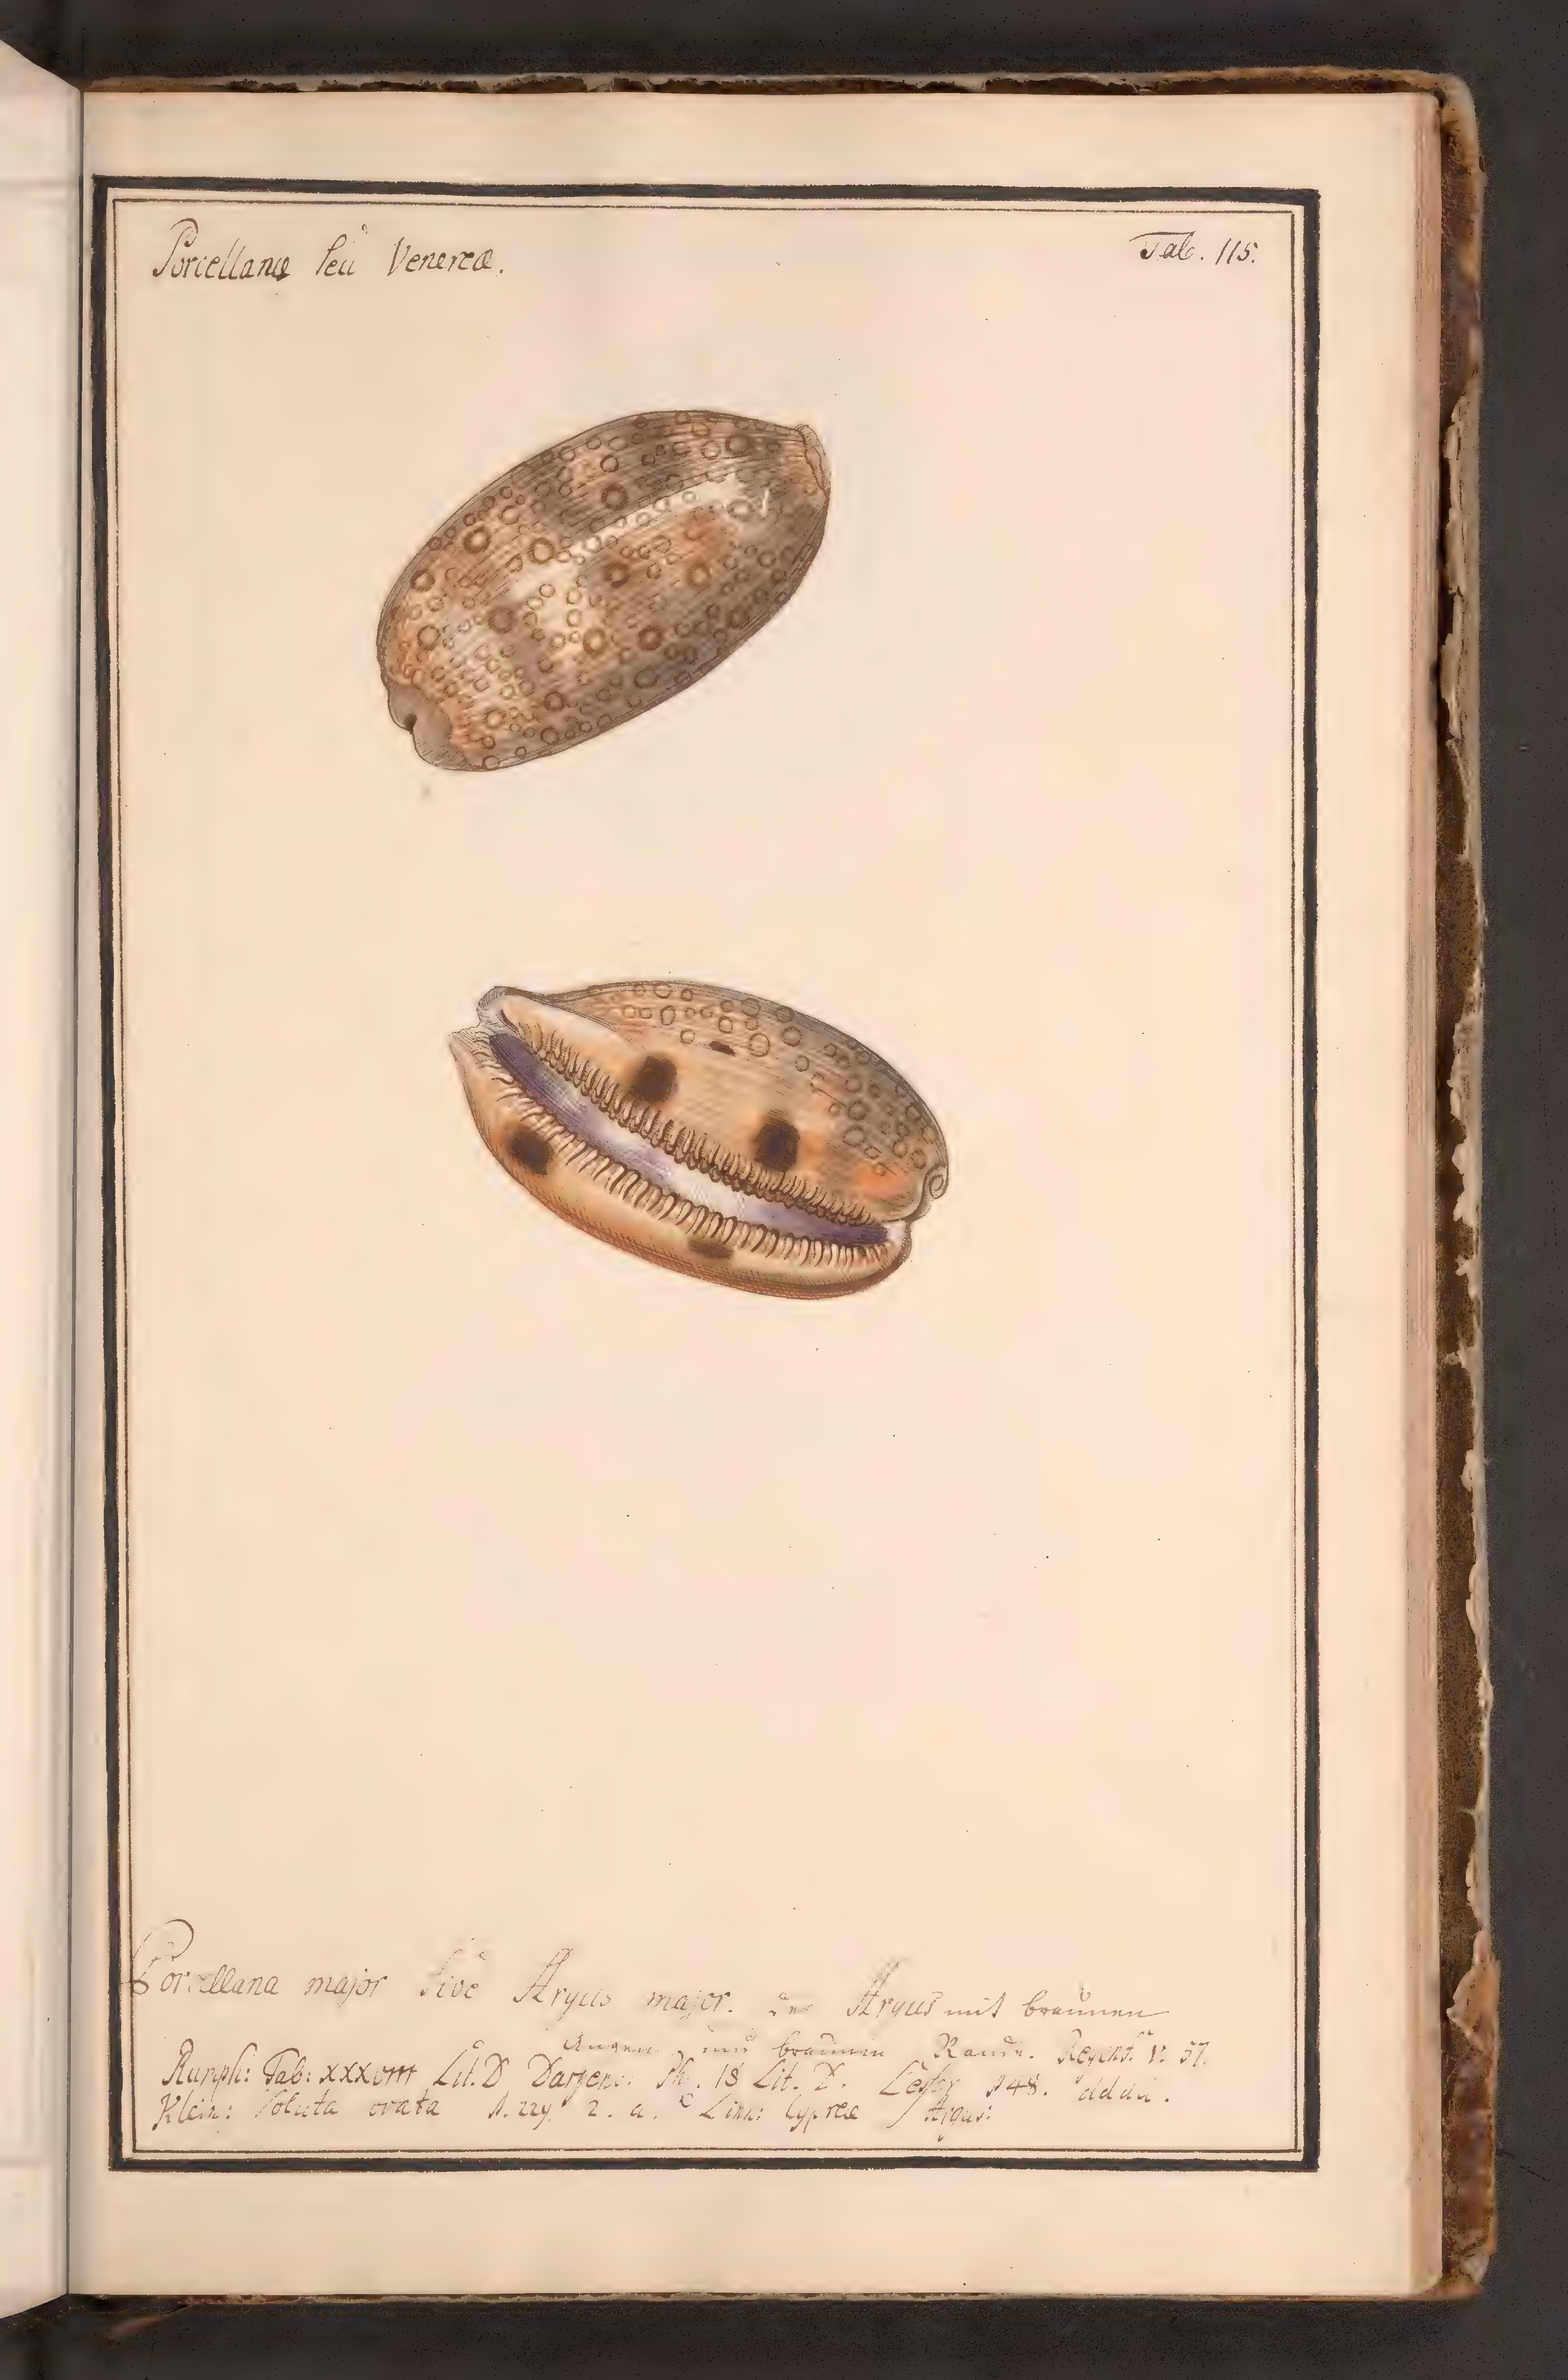 Porcellanæ seu Venereæ.
Tab. 115.
Porcellana major sive Argus major. der Argus mit braunen
Augen und braunen Rande. Regenf. V. 57.
Rumph: Tab: XXXVIII Lit. D Dargenv: Pl. 18 Lit. D. Lester 148. addit.
Klein: Voluta ovata N. 229. 2. a. Linn: Cypræa Argus: